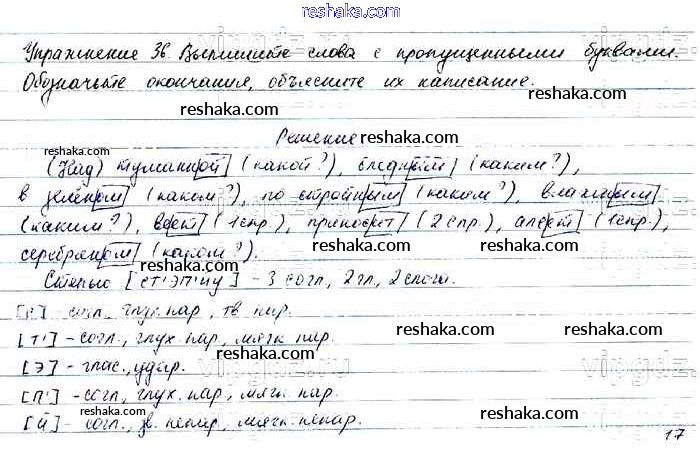 reshaka.com
Упражнение 36. Выпишите слова с пропущенными буквами.
reshaka.com
Обозначьте окончания, объясните их написание.
reshaka.com reshaka.com
Решение reshaka.com
reshaka.com
(Над) туманной (какой?), бледным (каким?),
в зелёном (каком?), по стройным (каким?), влажным
(каким?), веет (1 спр.), приносит (2 спр.), алеет (1 спр.),
серебряном (каком?). reshaka.com reshaka.com
Степью [ст'эп'йу] – 3 согл, 2 гл, 2 слога.
[с] – согл, глух. пар, тв. пар.
reshaka.com
[т'] – согл., глух. пар, мягк. пар. reshaka.com
reshaka.com
[э] – глас., удар.
reshaka.com
[п'] – согл, глух. пар, мягк. пар.
reshaka.com
[й] – согл., зв. непар, мягк. непар.
17